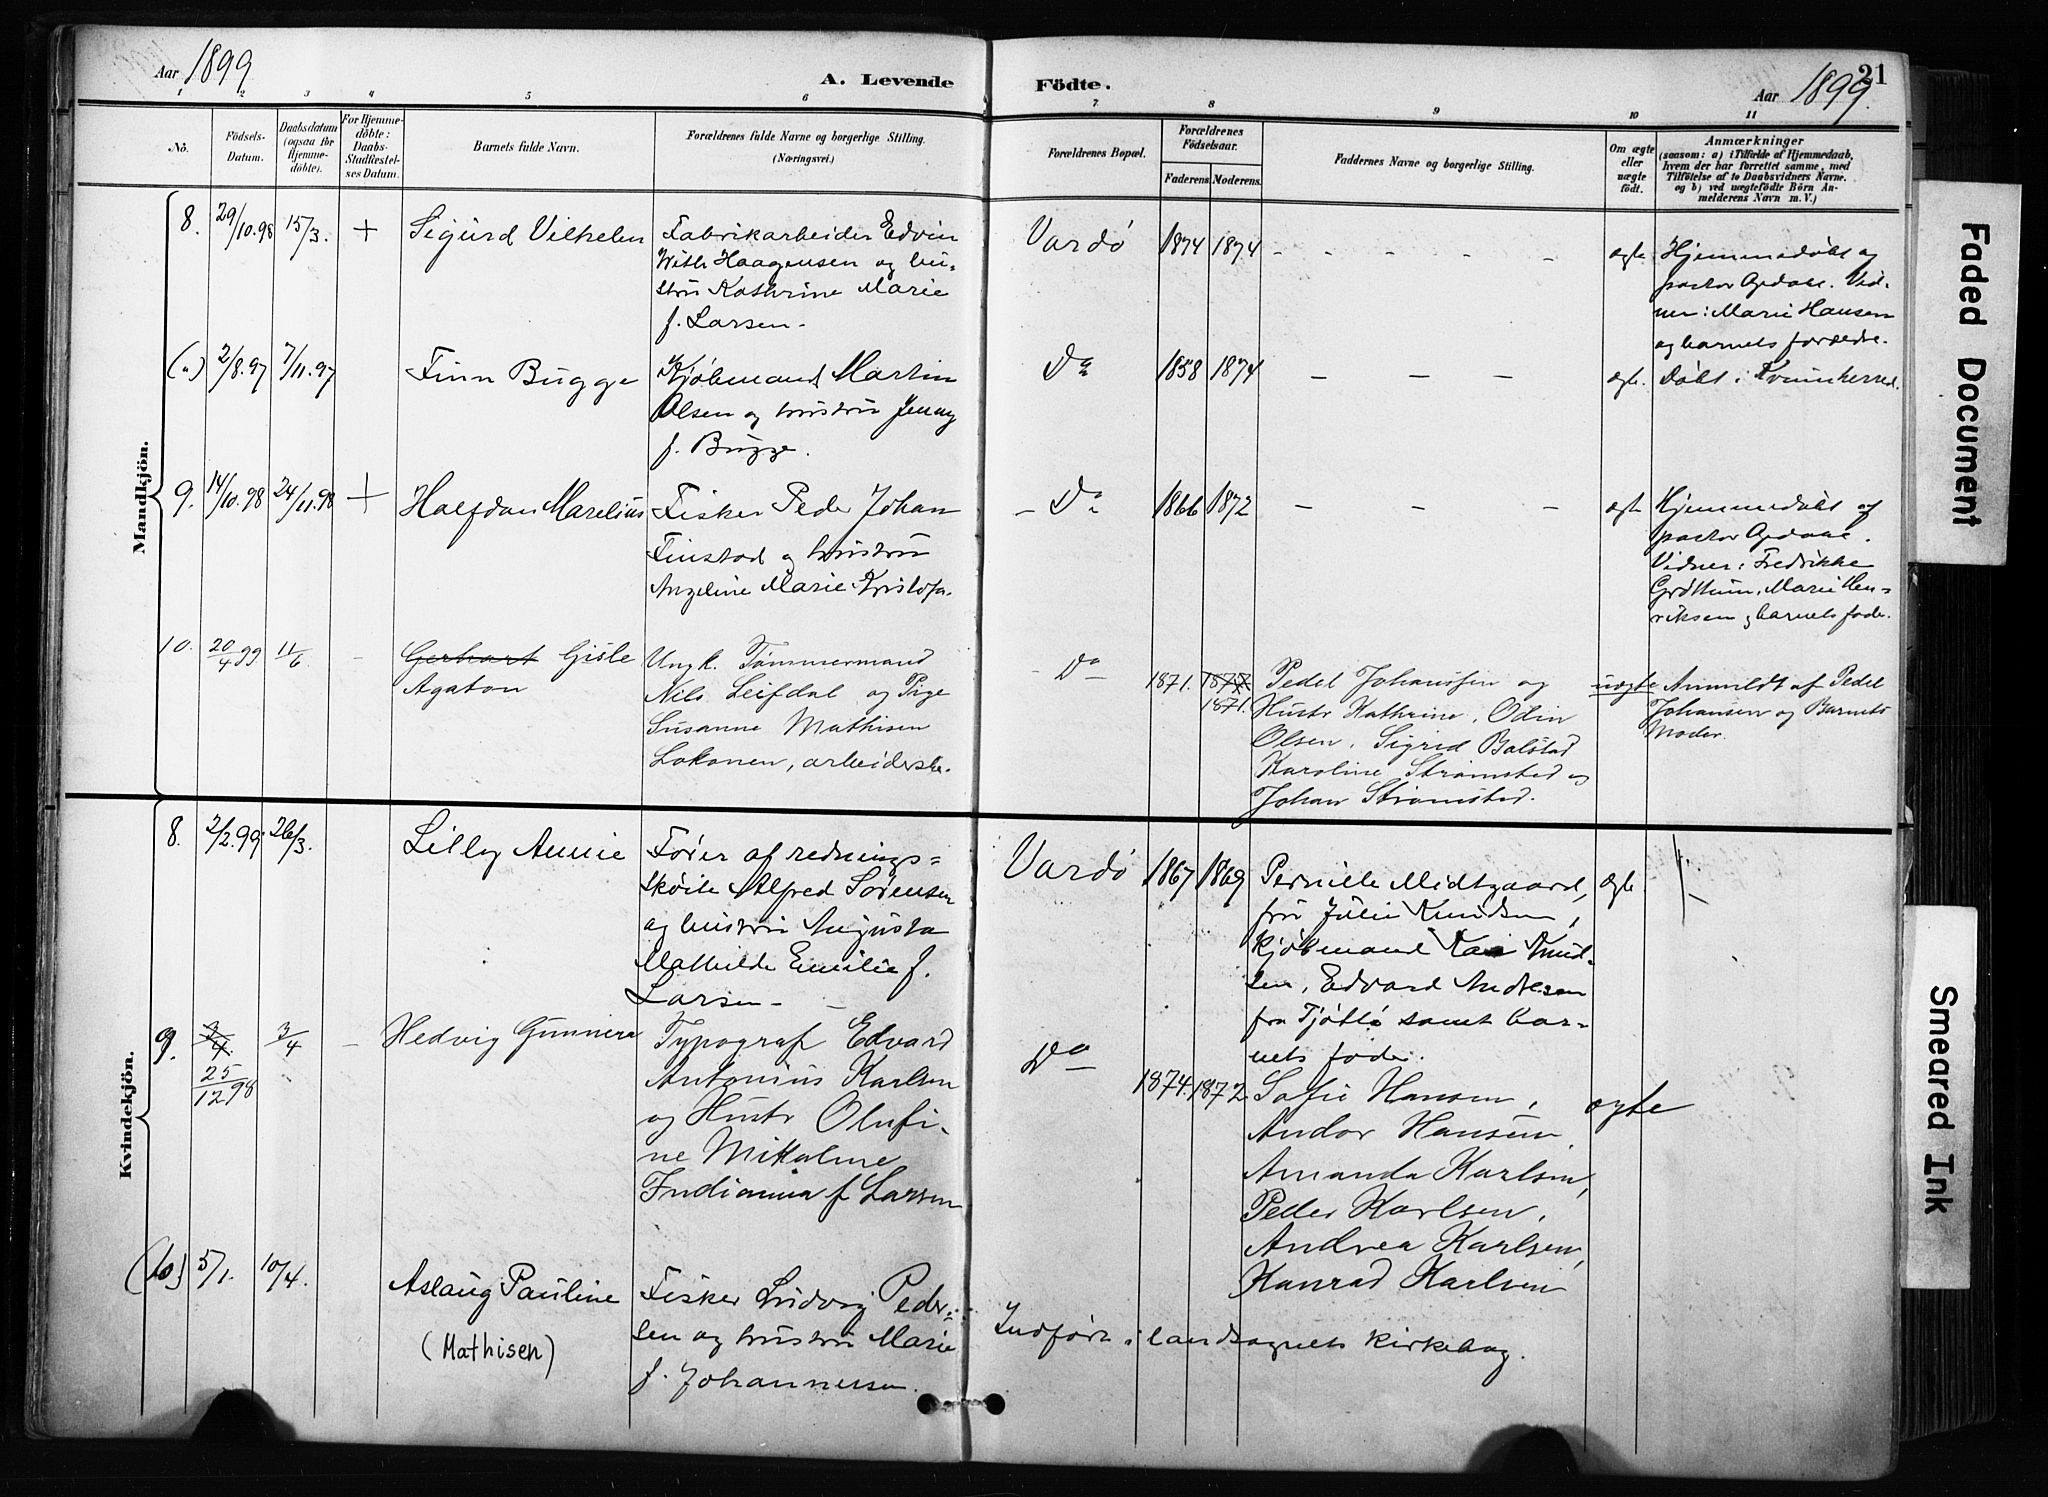 Aar 1899
A. Levende
Födte.
Aar 1899.
21
1 2 3 4 5 6 7 8 9 10 11
No.
Födsels-
Datum.
Daabsdatum
(ogsaa for
Hjemme-
döbte).
For Hjemme-
döbte:
Daabs-
Stadfæstel-
ses Datum.
Barnets fulde Navn.
Forældrenes fulde Navne og borgerlige Stilling.
(Næringsvei.)
Forældrenes Bopæl.
Forældrenes
Födselsaar.
Faderens. Moderens.
Faddernes Navne og borgerlige Stilling.
Om ægte
eller
uægte
födt.
Anmærkninger
(saasom: a) i Tilfælde af Hjemmedaab,
hvem der har forrettet samme, med
Tilföielse af to Daabsvidners Navne.
og b) ved uægtefödte Börn An-
melderens Navn m. V.)
Mandkjön.
8. 29/10.98 15/3. + Sigurd Vilhelm
Fabrikarbeider Edvin
With Haagensen og hu-
stru Kathrine Marie
f. Larsen.
Vardö 1874 1874 - - - - - ægte
Hjemmedöbt af
pastor Opdal. Vid-
ner: Marie Hansen
og barnets forældre.
2/8.97 7/11.97 Finn Bugge
Kjöbmand Martin
Olsen og hustru Jenny
f. Bugge.
Do 1858 1874 - - - ægte. Döbt i Kvinnherred.
9. 14/10.98 24/11.98 + Halfdan Marelius
Fisker Peder Johan
Finstad og hustru
Angeline Marie Kristofa.
- Do 1866 1872 - - - ægte
Hjemmedöbt af
pastor Opdal.
Vidner: Fredrikke
Gröttum, Marie Hen-
riksen og barnets fader.
10. 20/4 99 11/6 - Gerhart Gisle
Agaton
Ungk. Tømmermand
Nils Leifdal og Pige
Susanne Mathisen
Lokonen, arbeiderske.
- Do 1871. 1877 1871.
Peder Johansen og
Hustr Kathrine, Odin
Olsen, Sigrid Bolstad
Karoline Strømsted og
Johan Strømsted.
uægte Anmeldt af Peder
Johansen og Barnets
Moder.
Kvindekjön.
8. 2/2.99. 26/3. Lilly Annie
Fører af rednings=
skøite Alfred Sørensen
og hustru Augusta
Mathilde Emilie f.
Larsen -
Vardö 1867 1869
Pernille Midtgaard,
fru Julie Knudsen,
kjöbmand Kai Knud-
sen, Edvard Andresen
fra Tjöttö samt bar-
nets fader.
ægte
9. 3/4. 25/12 98 3/4 - Hedvig Gunnera
Typograf Edvard
Antonius Karlsen
og Hustr Olufi-
ne Mikaline
Indianna f Larsen
Do 1874. 1872
Sofie Hansen,
Andor Hansen,
Amanda Karlsen,
Peder Karlsen,
Andrea Karlsen,
Konrad Karlsen
ægte
5/1. 10/4. Aslaug Pauline
(Mathisen)
Fisker Ludvig Peder-
sen og hustru Marie
f. Johannesen.
Indført i landsognets kirkebog.
Faded Document
Smeared Ink